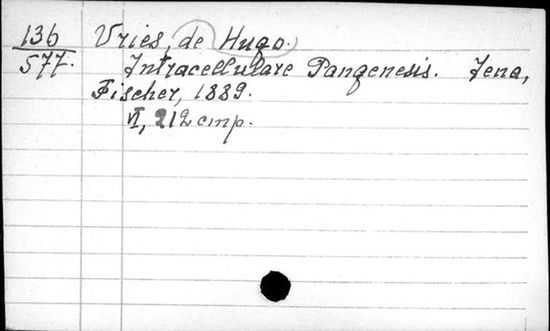 136 Vries, de Hugo.
577. Intracellulare Pangenesis. Jena,
Fischer, 1889.
VI, 212 cmp.